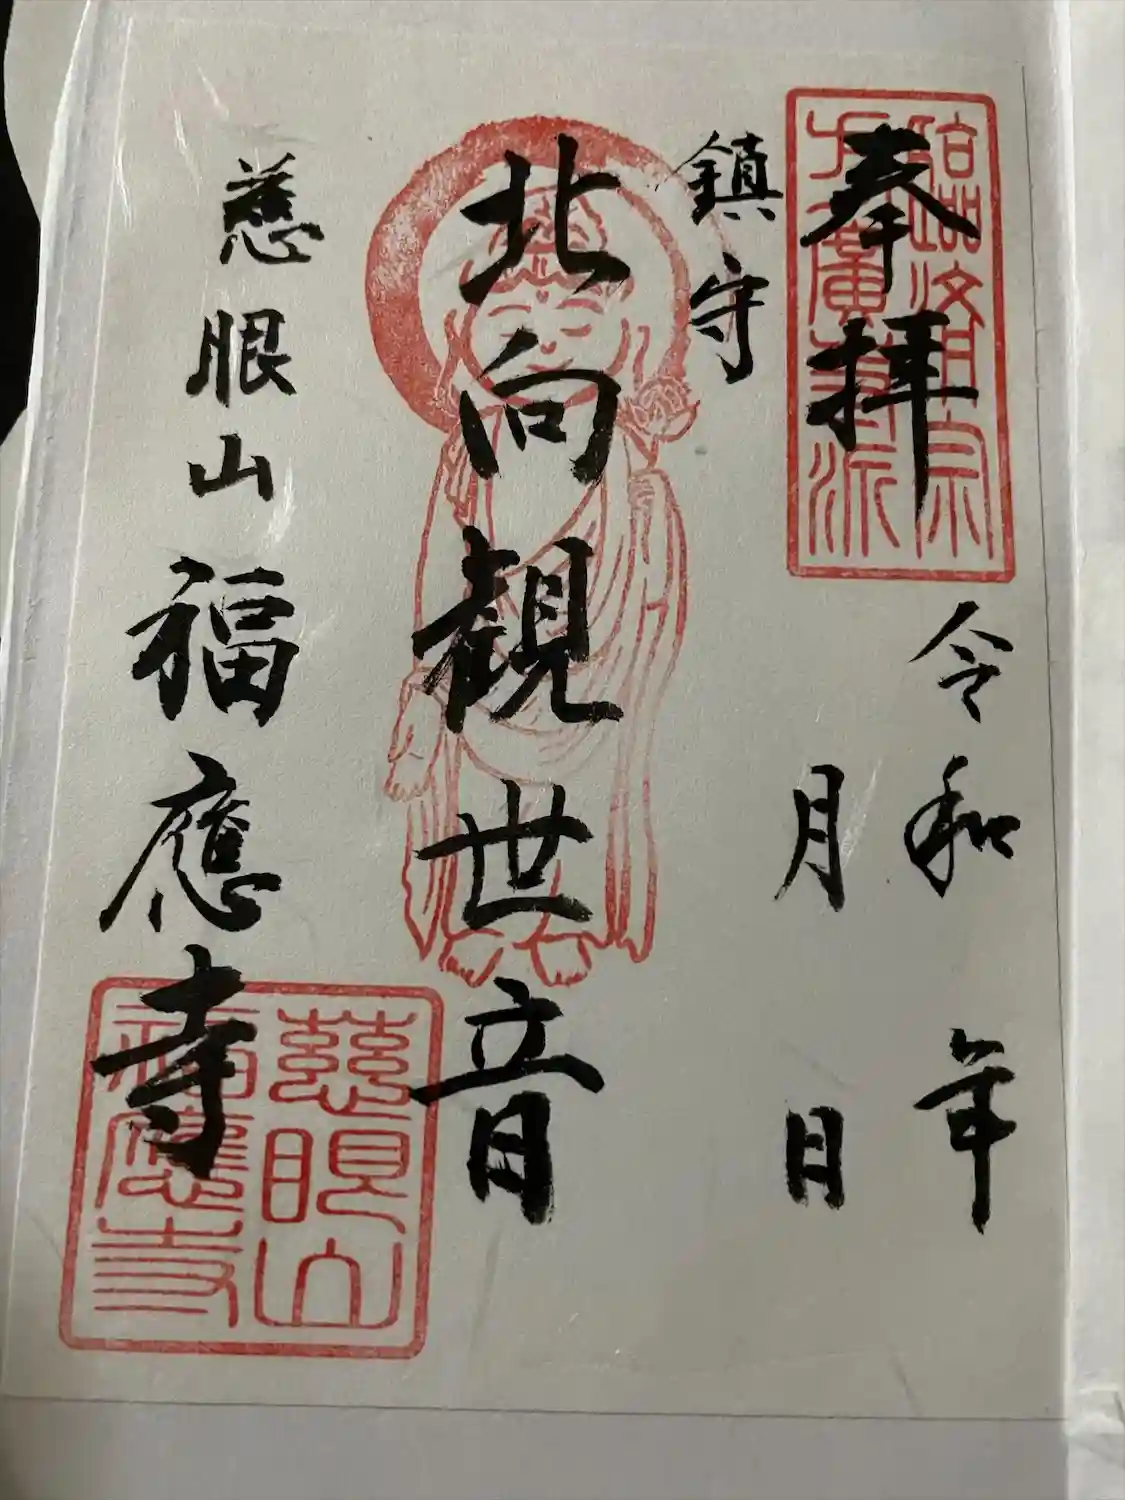 臨済宗
方廣寺派
奉拝
令和 年
月 日
鎮守
北向観世音
慈眼山福應寺
慈眼山
福應寺